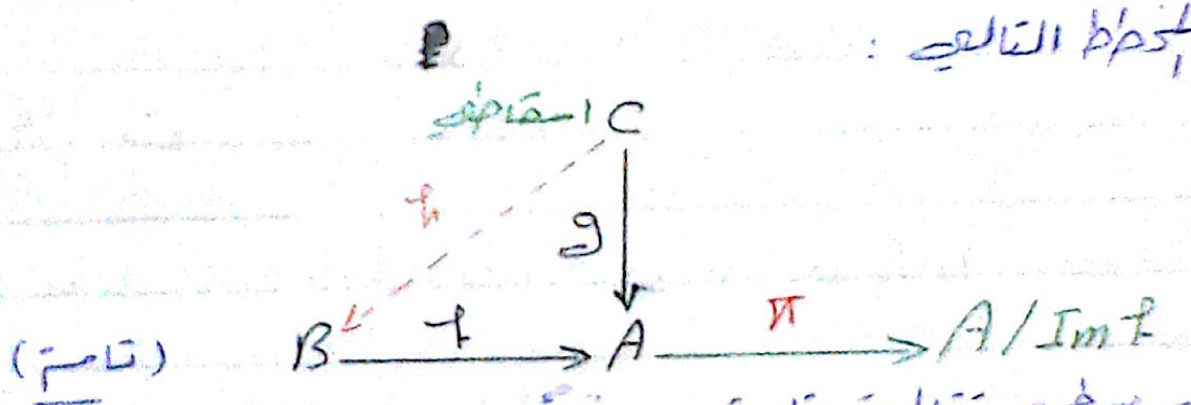 المخطط التالي :
P
C إسقاطي
h
g
(تامة) B f A π A/Im f